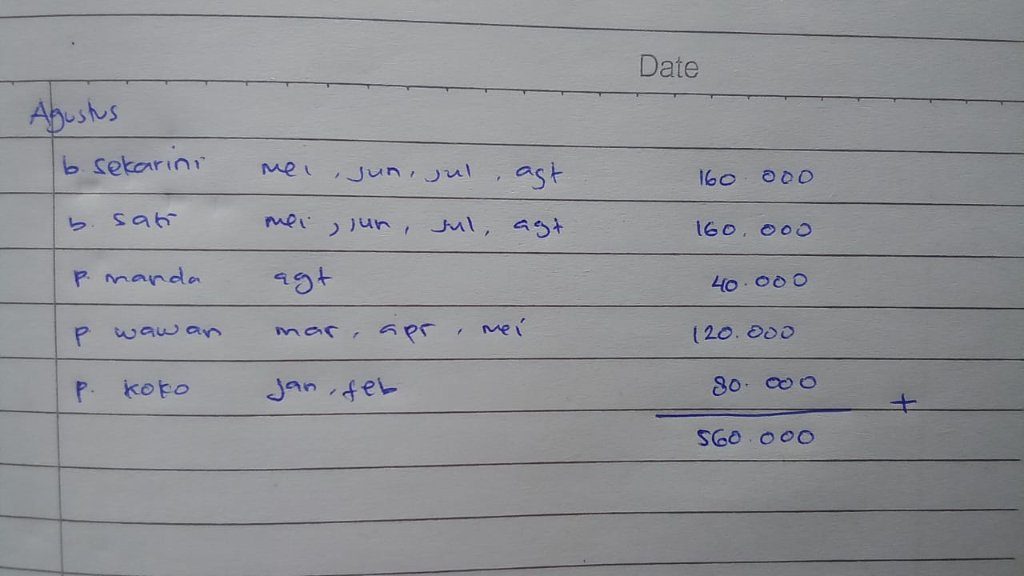 Date
Agustus
b. sekarini mei, jun, jul, agt 160.000
b. sati mei, jun, jul, agt 160.000
p. manda agt 40.000
p wawan mar, apr, mei 120.000
p. koko jan, feb 80.000 +
560.000